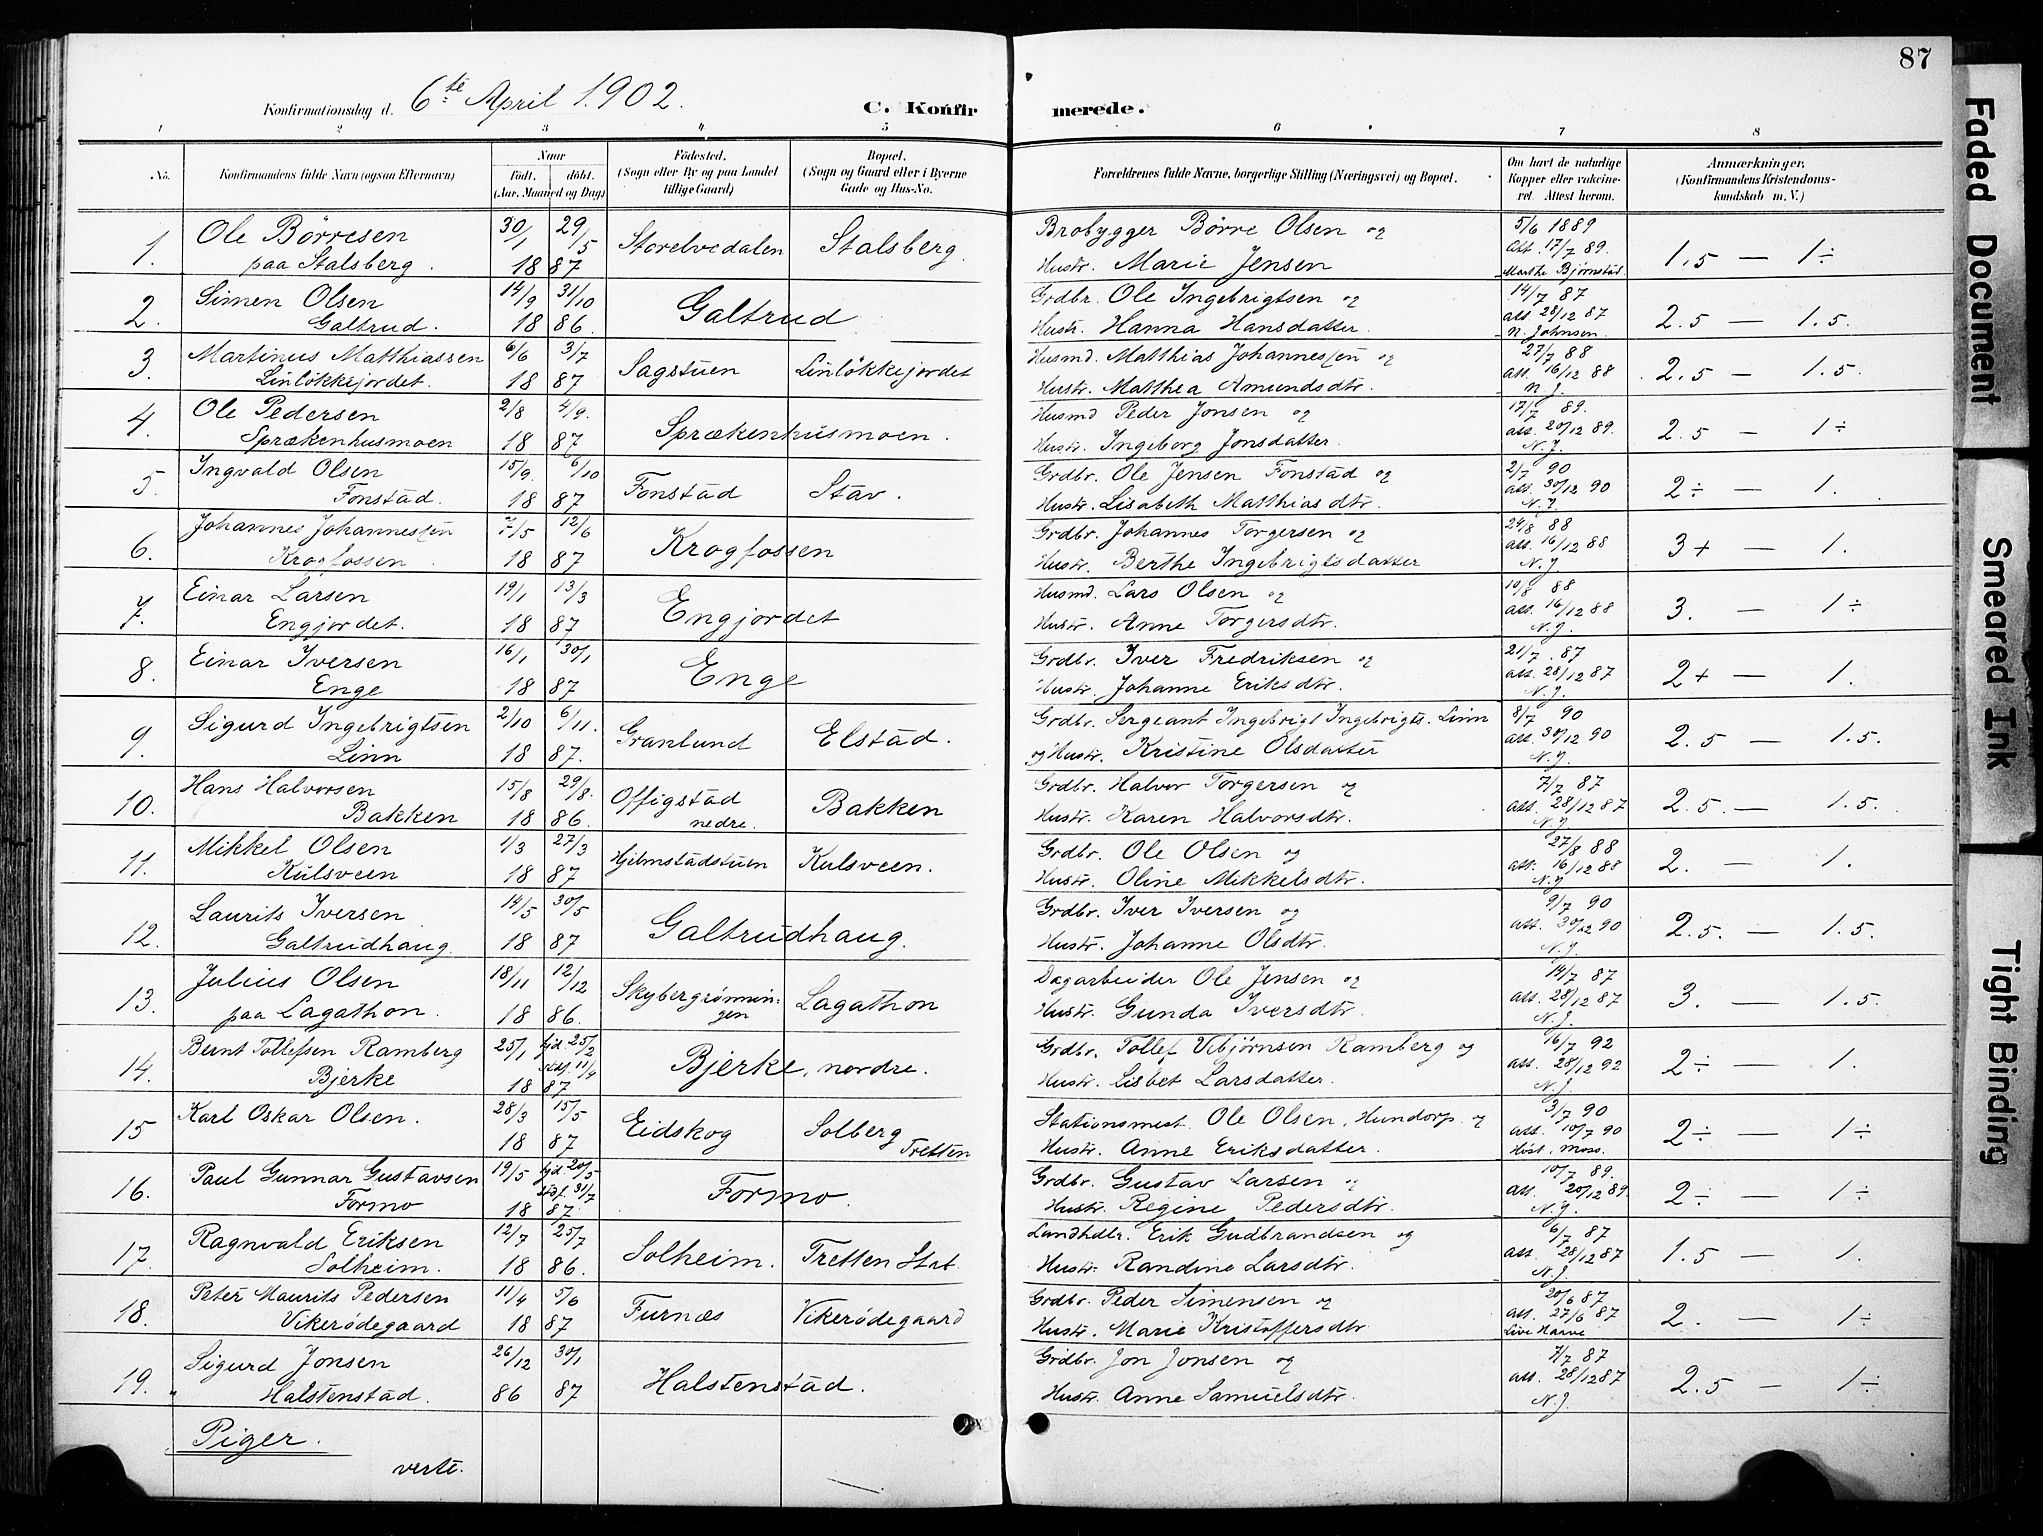 87
Konfirmationsdag d. 6te April 1902.
C. Konfirmerede.
1 2 3 4 5 6 7 8
No. Konfirmandens fulde Navn (ogsaa Efternavn) Naar Födt. döbt. (Aar, Maaned og Dag) Födested. (Sogn eller By og paa Landet tillige Gaard) Bopæl. (Sogn og Gaard eller i Byerne Gade og Hus-No. Forældrenes fulde Navne, borgerlige Stilling (Næringsvei) og Bopæl. Om havt de naturlige Kopper eller vakcineret. Attest herom. Anmærkninger. (Konfirmandens Kristendomskundskab m. V.)
1. Ole Börresen 30/1 29/5 Storelvedalen Stalsberg. Brobygger Börre Olsen og 5/6 1889
paa Stalsberg. 18 87 Hustr. Marie Jensen Att. 17/7 89. Marthe Bjørnstad. 1.5 — 1÷
2. Simen Olsen 14/9 31/10 Galtrud Grdbr. Ole Ingebrigtsen og 14/7 87
Galtrud. 18 86. Hustr. Hanna Hansdatter. att 28/12 87 N. Johnsen. 2.5 — 1.5.
3. Martinus Matthiassen 6/6 3/7 Sagstuen Linlökkejordet Husmd. Matthias Johannessen og 27/7 88
Linlökkejordet. 18 87 Hustr. Matthea Amundsdtr. att 16/12 88 N. J. 2.5 — 1.5.
4. Ole Pedersen 2/8 4/9. Sprækenhusmoen. Husmd Peder Jonsen og 17/7 89.
Sprækenhusmoen 18 87 Hustr. Ingeborg Jonsdatter. att. 20/12 89. N. J. 2.5 — 1÷
5. Ingvald Olsen 15/9. 6/10 Fonstad Stav. Grdbr. Ole Jensen Fonstad og 2/7 90
Fonstad. 18 87 Hustr. Lisabeth Matthiasdtr. att. 30/12 90 N. J. 2÷ — 1.
6. Johannes Johannessen 7/5 12/6 Krogfossen Grdbr. Johannes Torgersen og 24/8 88
Krogfossen 18 87 Hustr. Berthe Ingebrigtsdatter att. 16/12 88 N. J. 3+ — 1.
7. Einar Larsen 19/1 13/3 Engjordet Husmd. Lars Olsen og 10/8 88
Engjordet. 18 87 Hustr. Anne Torgersdtr. att. 16/12 88 N. J. 3. — 1÷
8. Einar Iversen 16/1 30/1 Enge Grdbr. Iver Fredriksen og 21/7 87
Enge 18 87 Hustr. Johanne Eriksdtr. att. 28/12 87 N. J. 2+ — 1.
9. Sigurd Ingebrigtsen 2/10 6/11. Granlund Elstad. Grdbr. Sergeant Ingebrigt Ingebrigts. Linn 8/7 90
Linn 18 87. og Hustr. Kristine Olsdatter att. 30/12 90 N. J. 2.5 — 1.5.
10. Hans Halvorsen 15/8 29/8. Offigstad nedre. Bakken Grdbr. Halvor Torgersen og 7/7 87
Bakken 18 86. Hustr. Karen Halvorsdtr. att. 28/12 87 N. J. 2.5. — 1.5.
11. Mikkel Olsen 1/3 27/3 Hjelmstadstuen Kulsveen. Grdbr. Ole Olsen og 27/8 88
Kulsveen 18 87 Hustr. Oline Mikkelsdtr. att. 16/12 88 N. J 2. — 1.
12. Laurits Iversen 14/5 30/5 Galtrudhaug. Grdbr. Iver Iversen og 9/7 90
Galtrudhaug. 18 87 Hustr. Johanne Olsdtr. att. 30/12 90 N. J. 2.5. — 1.5.
13. Julius Olsen 18/11 12/12 Skybergrönningen Lagathon Dagarbeider Ole Jensen og 14/7 87
paa Lagathon. 18 86. Hustr. Gunda Iversdtr. att. 28/12 87 N. J. 3. — 1.5.
14. Bernt Tollefsen Ramberg 25/1 hjd. 25/2 stdf. 11/4 Bjerke, nordre. Grdbr. Tollef Vebjörnsen Ramberg og 16/7 92
Bjerke 18 87 Hustr. Lisbet Larsdatter. att. 28/12 92 N. J. 2÷ — 1.
15 Karl Oskar Olsen. 28/3 15/5 Eidskog Solberg Tretten Stationsmest. Ole Olsen, Hundorp. og 3/7 90
18 87 Hustr. Anne Eriksdatter. att. 10/7 90 Höst. Moss. 2÷ — 1÷
16. Paul Gunnar Gustavsen 19/5 hjd. 20/5 stdf. 31/7 Formo. Grdbr. Gustav Larsen og 10/7 89.
Formo 18 87. Hustr. Regine Pedersdtr. att 20/12 89. N. J. 2÷ — 1÷
17. Ragnvald Eriksen 12/7 25/7 Solheim. Tretten Stat. Landhdlr. Erik Gudbrandsen og 6/7 87
Solheim. 18 86. Hustr. Randine Larsdtr. att. 28/12 87 N. J. 1.5 — 1.
18. Peter Maurits Pedersen 11/4 5/6 Furnæs Vikerödegaard Grdbr. Peder Simensen og 20/6 87
Vikerödegaard 18 87 Hustr. Marie Kristoffersdtr att. 27/6 87 Live Haave 2. — 1÷
19. Sigurd Jonsen 26/12 30/1 Halstenstad. Grdbr. Jon Jonsen og 7/7 87
Halstenstad. 86 87 Hustr. Anne Samuelsdtr. att. 28/12 87 N. J. 2.5 — 1÷
Piger.
verte.
Faded Document
Smeared Ink
Tight Binding